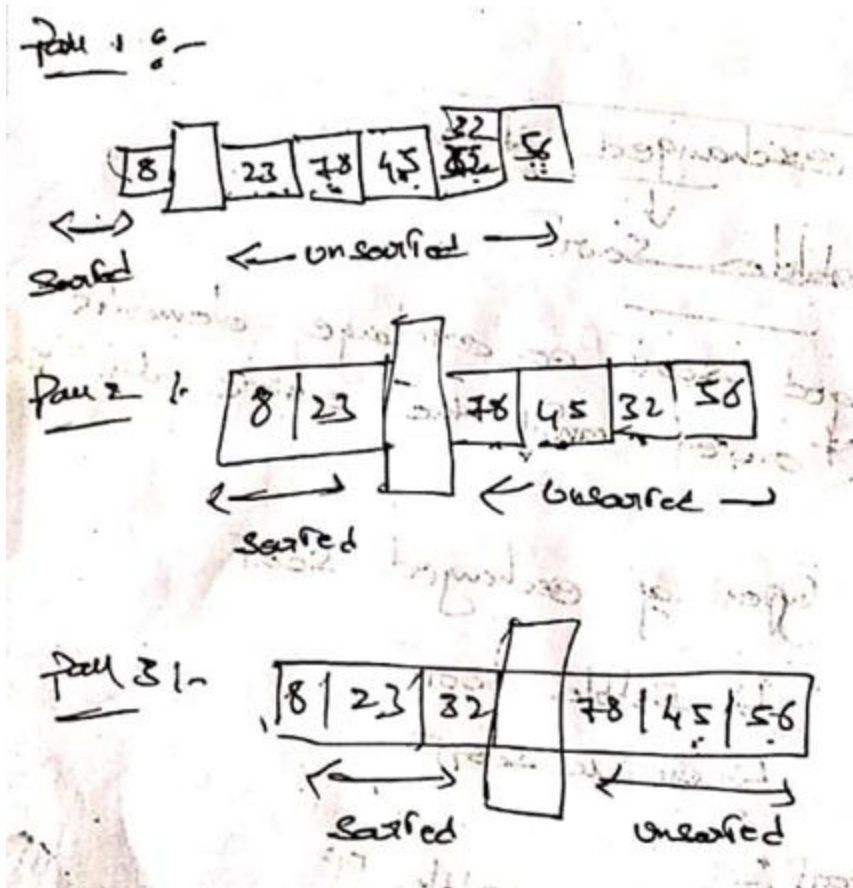 Pass 1 :-
8 23 78 45 32 56
Sorted unsorted
Pass 2 :-
8 23 78 45 32 56
Sorted Unsorted
Pass 3 :-
8 23 32 78 45 56
Sorted unsorted